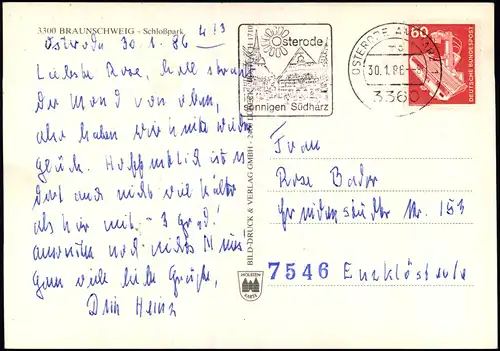 3300 BRAUNSCHWEIG - Schloßpark
Osterode 30.1.86
Liebste Rose, hell strahlt
der Mond von oben,
also haben wir heute wieder
Glück. Hoffentlich ist es
dort auch nicht viel kälter
als hier mit - 3 Grad!
ansonsten noch nichts Neues
Ganz viele liebe Grüße,
Dein Heinz
BILD-DRUCK & VERLAG GMBH - 24
Osterode
sonnigen Südharz
OSTERODE AM HARZ 1
30.1.86
3360
60
DEUTSCHE BUNDESPOST
HOLSTEN KARTE
Frau
Rose Bader
Nr. 153
7546 Enzklösterle